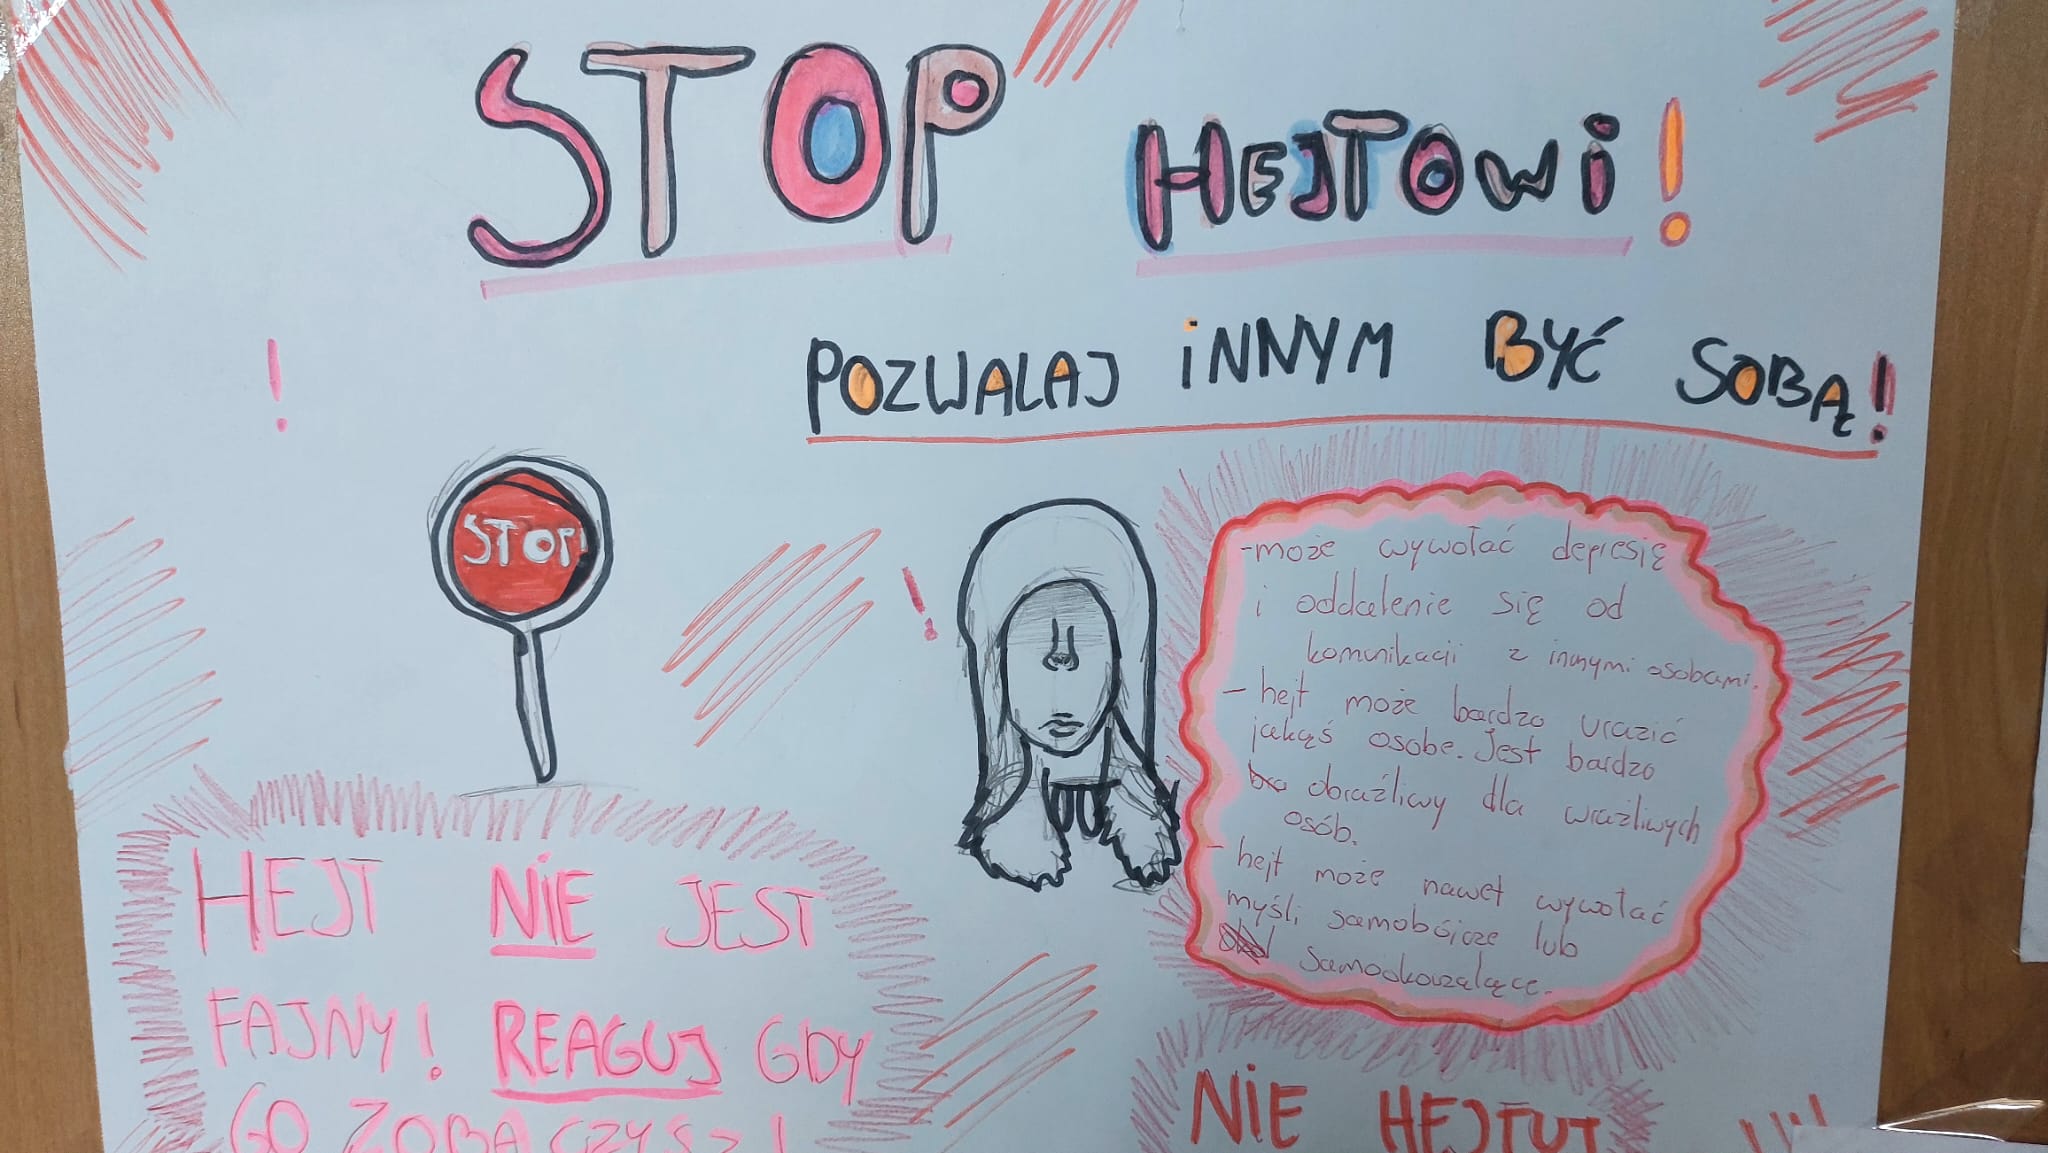 STOP HEJTOWI!
POZWALAJ INNYM BYĆ SOBĄ!
STOP
-może wywołać depresię
i oddalenie się od
komunikacji z innymi osobami.
- hejt może bardzo urazić
jakąś osobe. Jest bardzo
obraźliwy dla wrażliwych
osób.
- hejt może nawet wywołać
myśli samobójcze lub
samookarzalące.
HEJT NIE JEST
FAJNY! REAGUJ GDY
GO ZOBACZYSZ!
NIE HEJTUJ